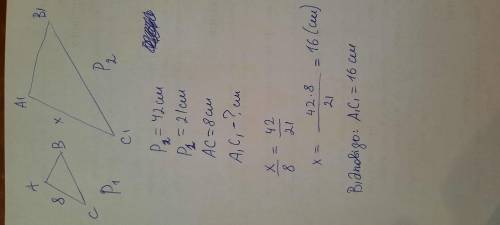 A
B
8
C
P₁
A₁
B₁
x
C₁
P₂
P₂ = 42 см
P₁ = 21 см
AC = 8 см
A₁C₁ - ? см
x/8 = 42/21
x = 42·8/21 = 16 (см)
Відповідь: A₁C₁ = 16 см